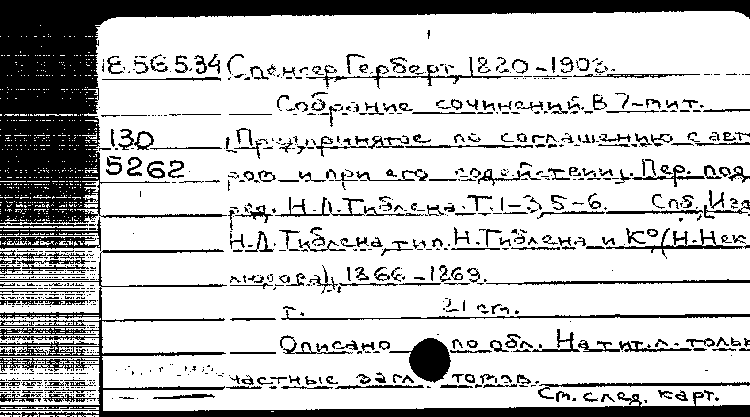 18.56.5.34 Спенсер, Герберт, 1820-1903.
Собрание сочинений. В 7-ми т.
130 (Предпринятое по соглашению с авт
5262 ром и при его содействии). Пер. под
ред. Н.Л. Тиблена. Т. 1-3, 5-6. Спб, Изд
Н.Л. Тиблена, тип. Н. Тиблена и К° (Н. Нек
людова), 1866-1869.
т. 21 см.
Описано по обл. На тит. л. тольк
частные загл. томов.
См. след. карт.